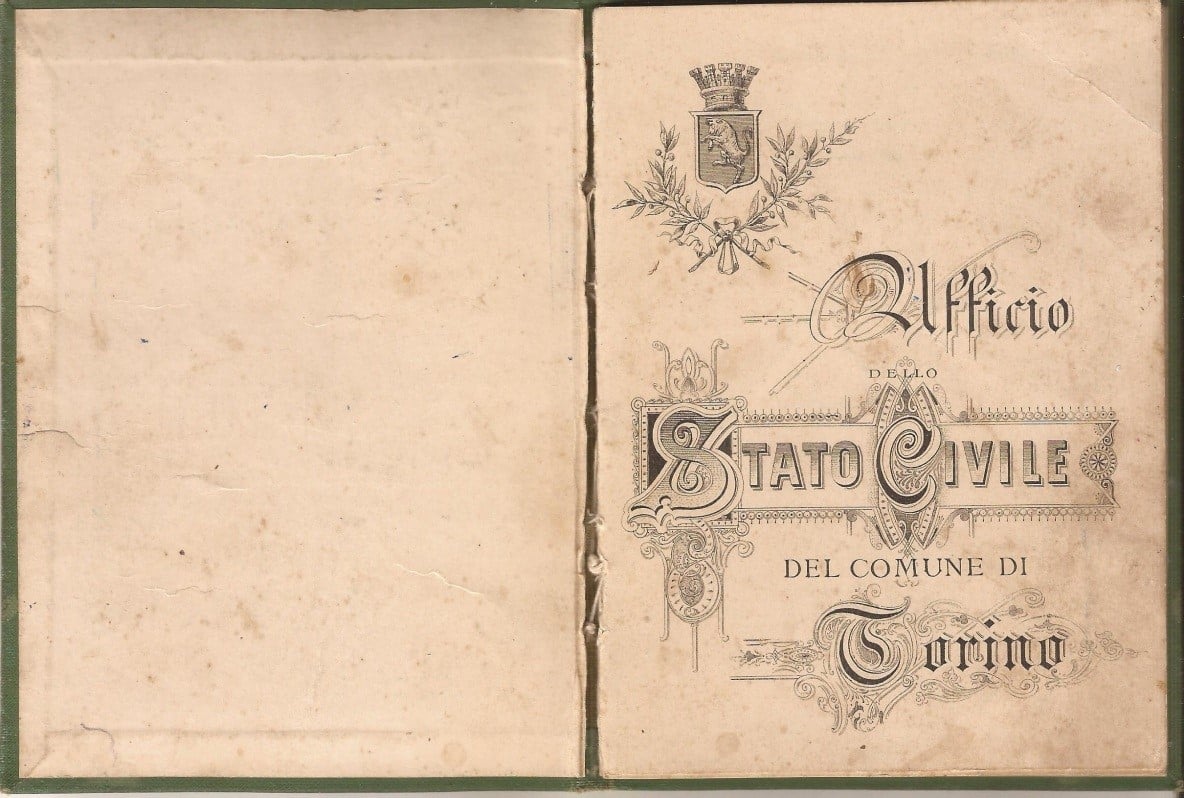 Ufficio
DELLO
STATO CIVILE
DEL COMUNE DI
Torino